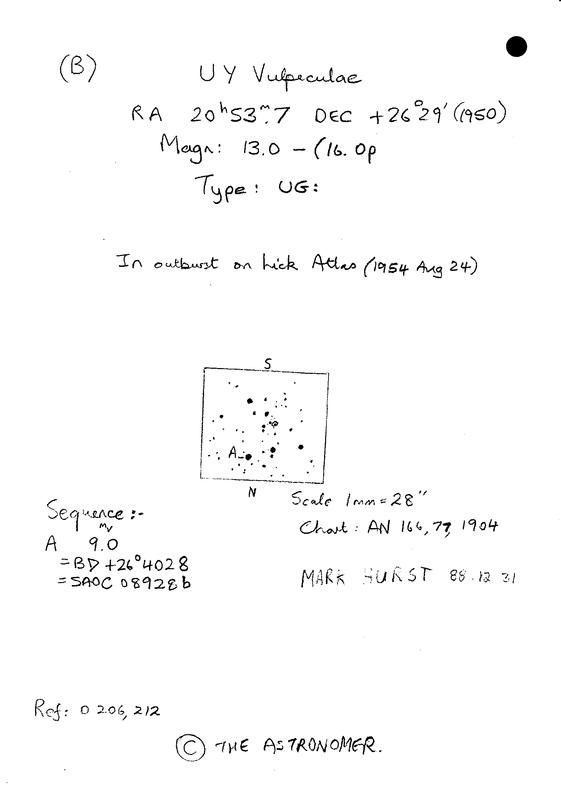 (B)
UY Vulpeculae
RA 20ʰ53ᵐ.7 DEC +26°29' (1950)
Magn: 13.0 – (16.0p
Type: UG:
In outburst on Lick Atlas (1954 Aug 24)
S
A
N
Scale 1mm = 28"
Chart: AN 166, 77, 1904
Sequence :-
mv
A 9.0
= BD +26°4028
= SAOC 089286
MARK HURST 88.12.31
Ref: O 206, 212
© THE ASTRONOMER.